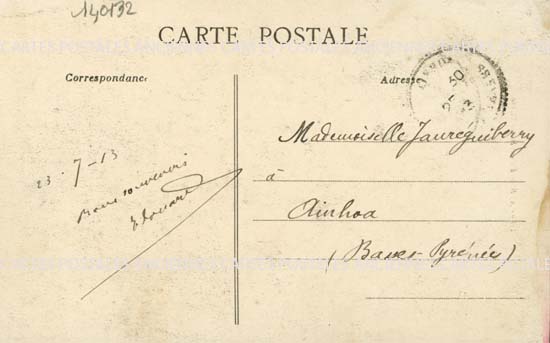 140132
CARTE POSTALE
Correspondance
Adresse
23-7-13
Bons souvenirs
Edouard
Mademoiselle Jaureguiberry
à
Ainhoa
(Basses-Pyrénées)